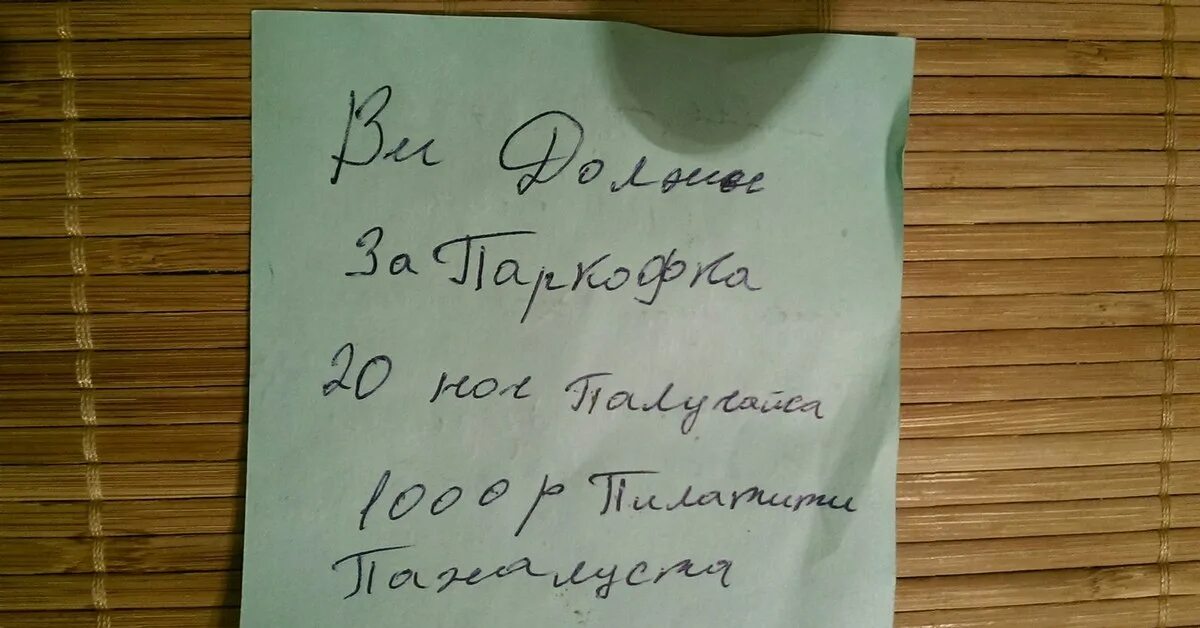 Ви Должни
За Паркофка
20 ноч Палучайса
1000 р Пилатити
Пажалуста